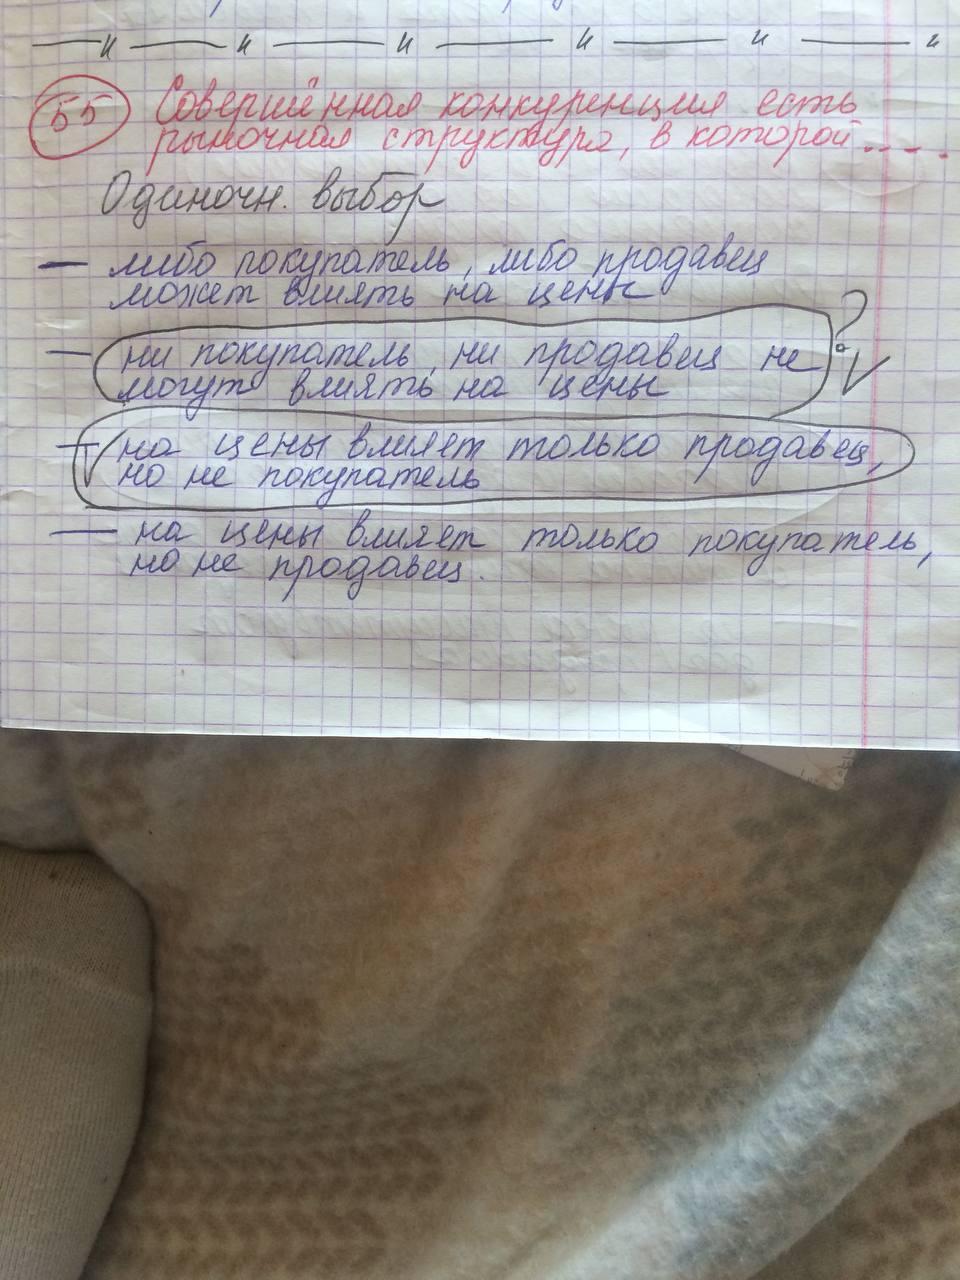 — и — и — и — и — и — и
55 Совершенная конкуренция есть
рыночная структура, в которой....
Одиночн. выбор
— либо покупатель, либо продавец
может влиять на цены
— ни покупатель, ни продавец не ?
могут влиять на цены
— на цены влияет только продавец,
но не покупатель
— на цены влияет только покупатель,
но не продавец.